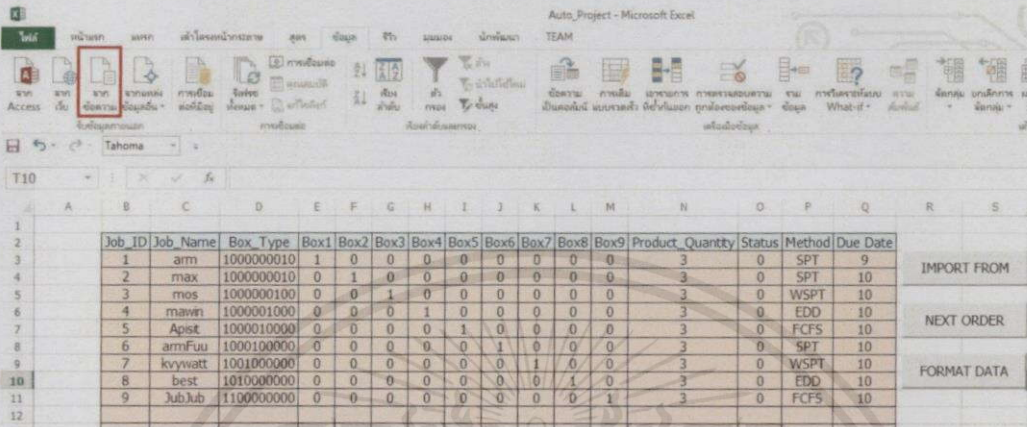 Auto_Project - Microsoft Excel
ไฟล์ หน้าแรก แทรก เค้าโครงหน้ากระดาษ สูตร ข้อมูล รีวิว มุมมอง นักพัฒนา TEAM
จาก Access จาก เว็บ จาก ข้อความ จากแหล่ง ข้อมูลอื่น การเชื่อม ต่อที่มีอยู่
รีเฟรช ทั้งหมด การเชื่อมต่อ คุณสมบัติ
เรียง ลำดับ ตัว กรอง ล้าง นำไปใช้ใหม่ ขั้นสูง
ข้อความ เป็นคอลัมน์ การเติม แบบรวดเร็ว เอารายการ ที่ซ้ำกันออก การตรวจสอบความ ถูกต้องของข้อมูล รวม ข้อมูล การวิเคราะห์แบบ What-if ความ สัมพันธ์
จัดกลุ่ม ยกเลิกการ จัดกลุ่ม
รับข้อมูลภายนอก การเชื่อมต่อ เรียงลำดับและกรอง เครื่องมือข้อมูล
Tahoma
T10 fx
A B C D E F G H I J K L M N O P Q R S
1
2 Job_ID Job_Name Box_Type Box1 Box2 Box3 Box4 Box5 Box6 Box7 Box8 Box9 Product_Quantity Status Method Due Date
3 1 arm 1000000010 1 0 0 0 0 0 0 0 0 3 0 SPT 9
4 2 max 1000000010 0 1 0 0 0 0 0 0 0 3 0 SPT 10
5 3 mos 1000000100 0 0 1 0 0 0 0 0 0 3 0 WSPT 10
6 4 mawin 1000001000 0 0 0 1 0 0 0 0 0 3 0 EDD 10
7 5 Apisit 1000010000 0 0 0 0 1 0 0 0 0 3 0 FCFS 10
8 6 armFuu 1000100000 0 0 0 0 0 1 0 0 0 3 0 SPT 10
9 7 kvywatt 1001000000 0 0 0 0 0 0 1 0 0 3 0 WSPT 10
10 8 best 1010000000 0 0 0 0 0 0 0 1 0 3 0 EDD 10
11 9 JubJub 1100000000 0 0 0 0 0 0 0 0 1 3 0 FCFS 10
12
IMPORT FROM
NEXT ORDER
FORMAT DATA